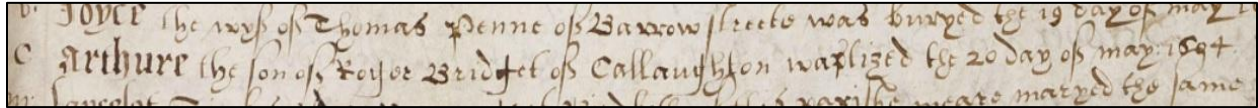 b. Joyce the wyf of Thomas Penne of Barrow streete was buryed the 19 day of may
C Arthure the son of Roger Bridget of Callaughton baptized the 20 day of may: 1594.
parishe weare maryed the same